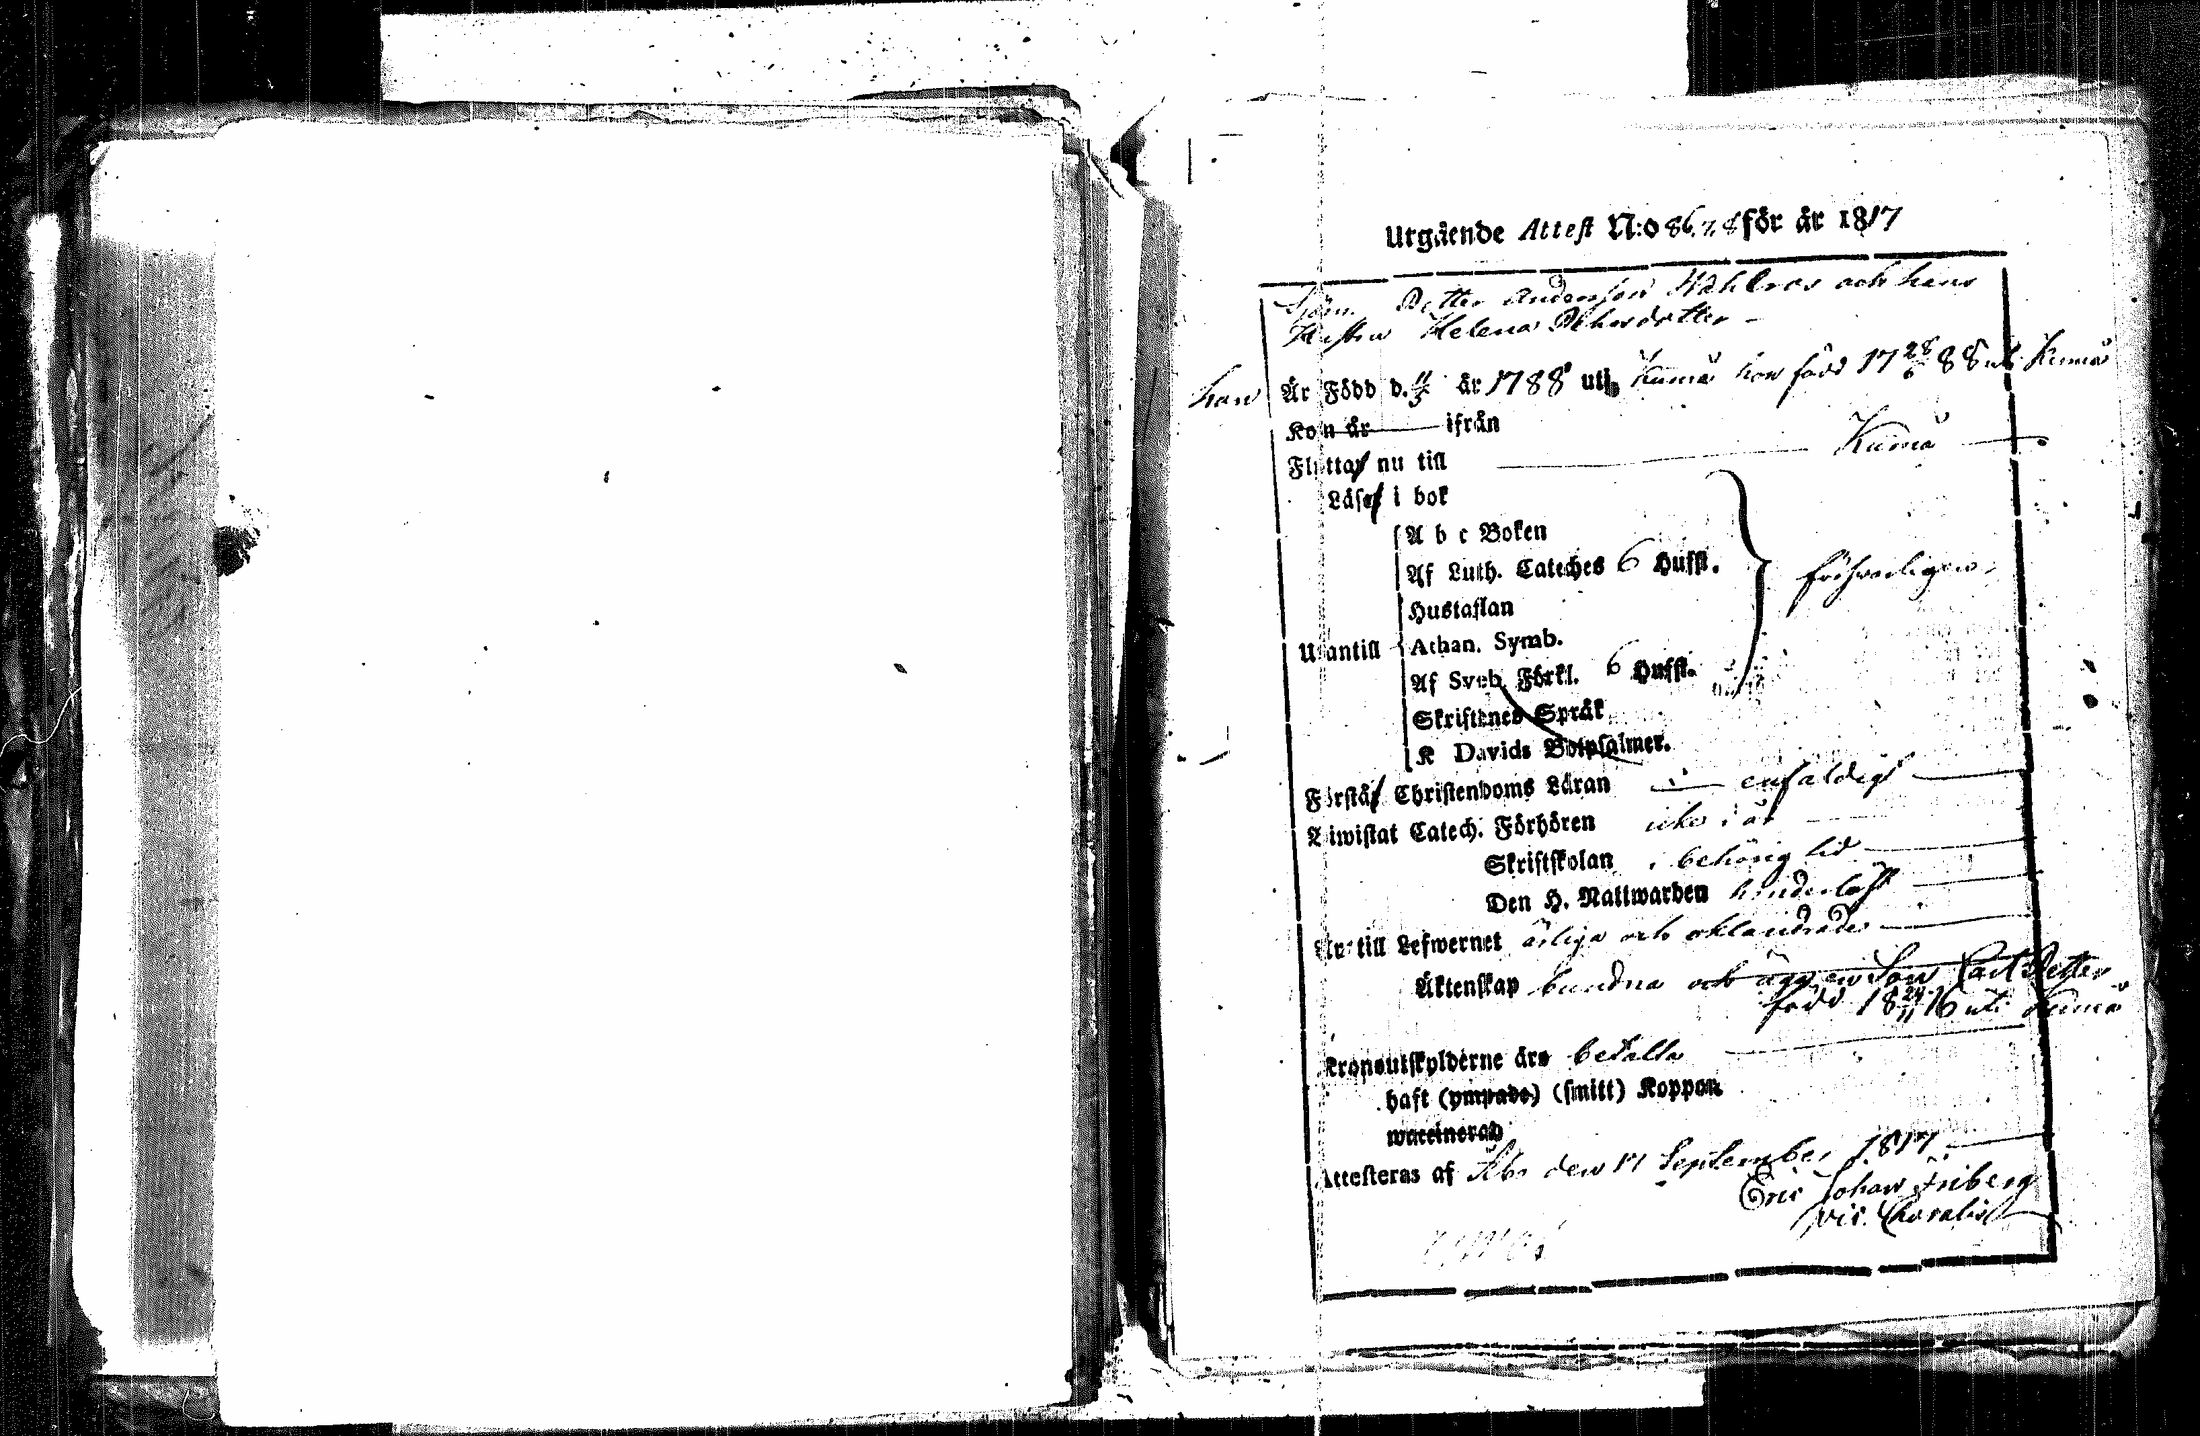 Utgående Attest N:o 86. 7. 8 för år 1817
Sjöm. Petter Andersson Wahlros och hans
Hustru Helena
han Är Född d. 11/3 år 1788 uti Kumå hon född 17 28/6 88 uti Kumå
Kom år ifrån
Flyttar nu till Kumå
Läser i bok
A b c Boken
Af Luth. Cateches 6 Hufst.
Hustaflan
försvarligen.
Utantill Athan. Symb.
Af Sveb. Förkl. 6 Hufst.
Skriftenes Språk
K Davids Botpsalmer.
Förstår Christendoms Läran enfaldigt
Biwistat Catech. Förhören icke i år
Skriftskolan i behörig tid
Den H. Nattwarden
Är till Lefwernet ärliga och oklandrade
Äktenskap bundna och äga en Son Carl Petter
född 18 24/11 16 uti Kumå
Kronoutskylderne äro betalta
haft (ympade) (smitt) Koppor
waccinerad
Attesteras af Åbo den 11 September 1817.
Eric Johan Friberg
vic.